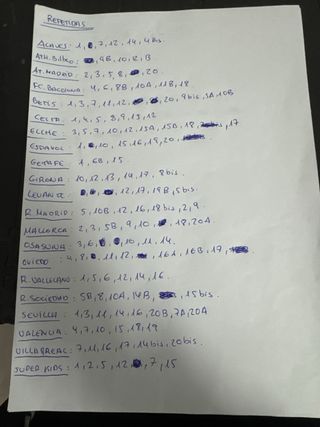 REPETIDAS
ALAVES: 1, 7, 12, 14, 4bis.
ATH. BILBAO: 9B, 10, 12, B
AT. MADRID: 2, 3, 5, 8, 20.
FC. BARCELONA: 4, 6, 8B, 10A, 11B, 18
BETIS: 1, 3, 7, 11, 12, 20, 9bis, 5A, 10B
CELTA: 1, 4, 5, 8, 9, 13, 12
ELCHE: 3, 5, 7, 10, 12, 13A, 15B, 18, 17
ESPAÑOL: 1, 10, 15, 16, 19, 20
GETAFE: 1, 6B, 15.
GIRONA: 10, 12, 13, 14, 17, 8bis.
LEVANTE: 12, 17, 19B, 5bis.
R. MADRID: 5, 10B, 12, 16, 18bis, 2, 9.
MALLORCA: 2, 3, 5B, 9, 10, 18, 20A
OSASUNA: 3, 6, 10, 11, 14.
OVIEDO: 4, 8, 11, 12, 16A, 10B, 17,
R. VALLECANO: 1, 5, 6, 12, 14, 16.
R. SOCIEDAD: 5B, 8, 10A, 14B, 15bis.
SEVILLA: 1, 3, 11, 14, 16, 20B, 7A, 20A
VALENCIA: 4, 7, 10, 15, 18, 19
VILLARREAL: 7, 11, 16, 17, 14bis, 20bis.
SUPER KIDS: 1, 2, 5, 12, 7, 15